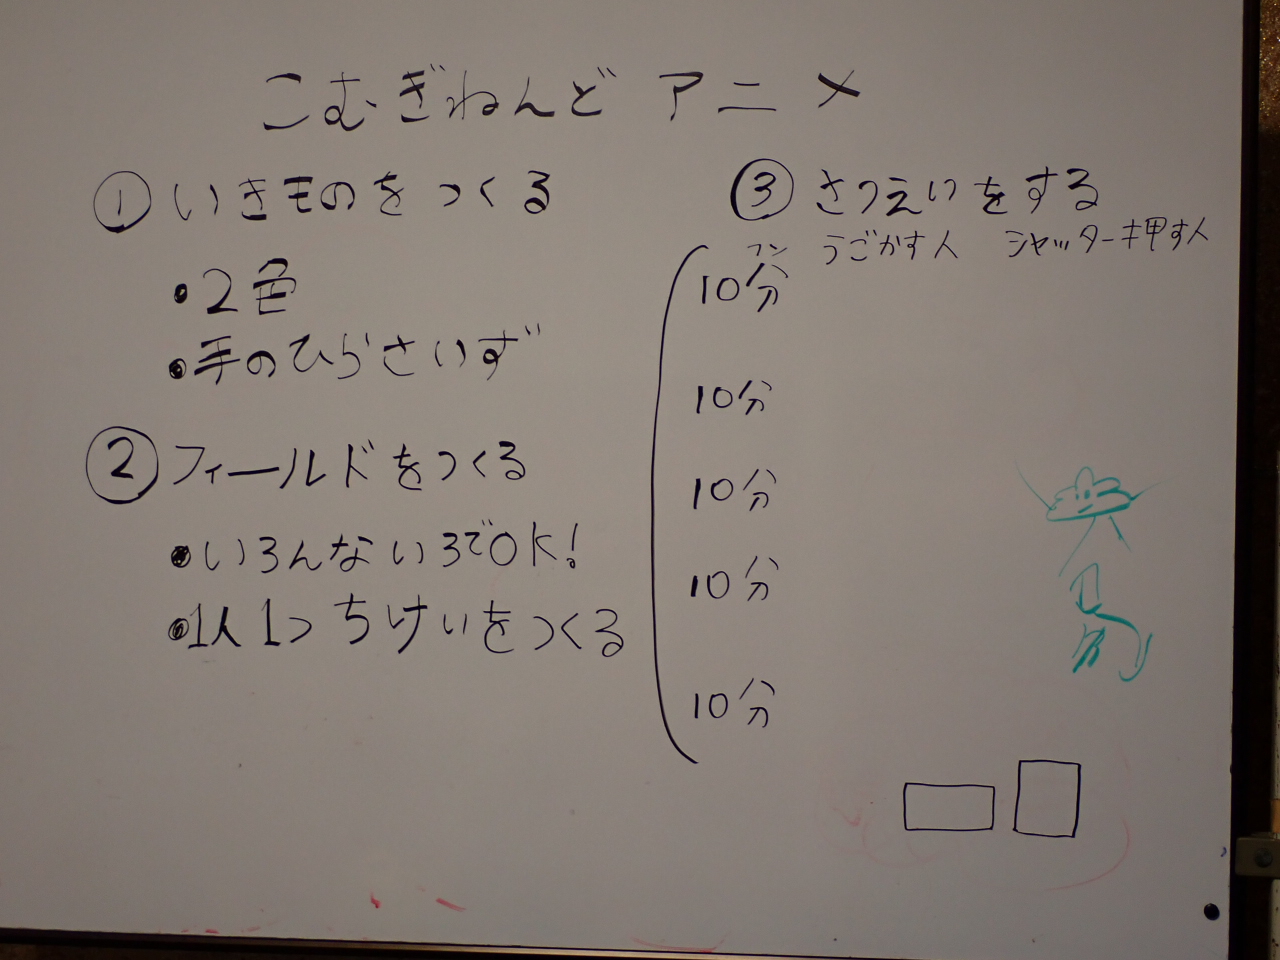 こむぎねんど アニメ
① いきものをつくる
・2色
・手のひらさいず
② フィールドをつくる
・いろんないろでOK!
・1人1つちけいをつくる
③ さつえいをする
うごかす人 シャッターキ押す人
フン
10分
10分
10分
10分
10分